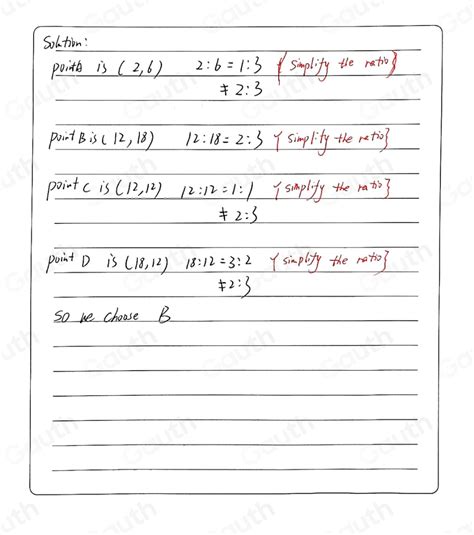 Solution:
pointA is (2,6) 2:6=1:3 {simplify the ratio}
≠2:3
point B is (12,18) 12:18=2:3 {simplify the ratio}
point C is (12,12) 12:12=1:1 {simplify the ratio}
≠2:3
point D is (18,12) 18:12=3:2 {simplify the ratio}
≠2:3
so we choose B